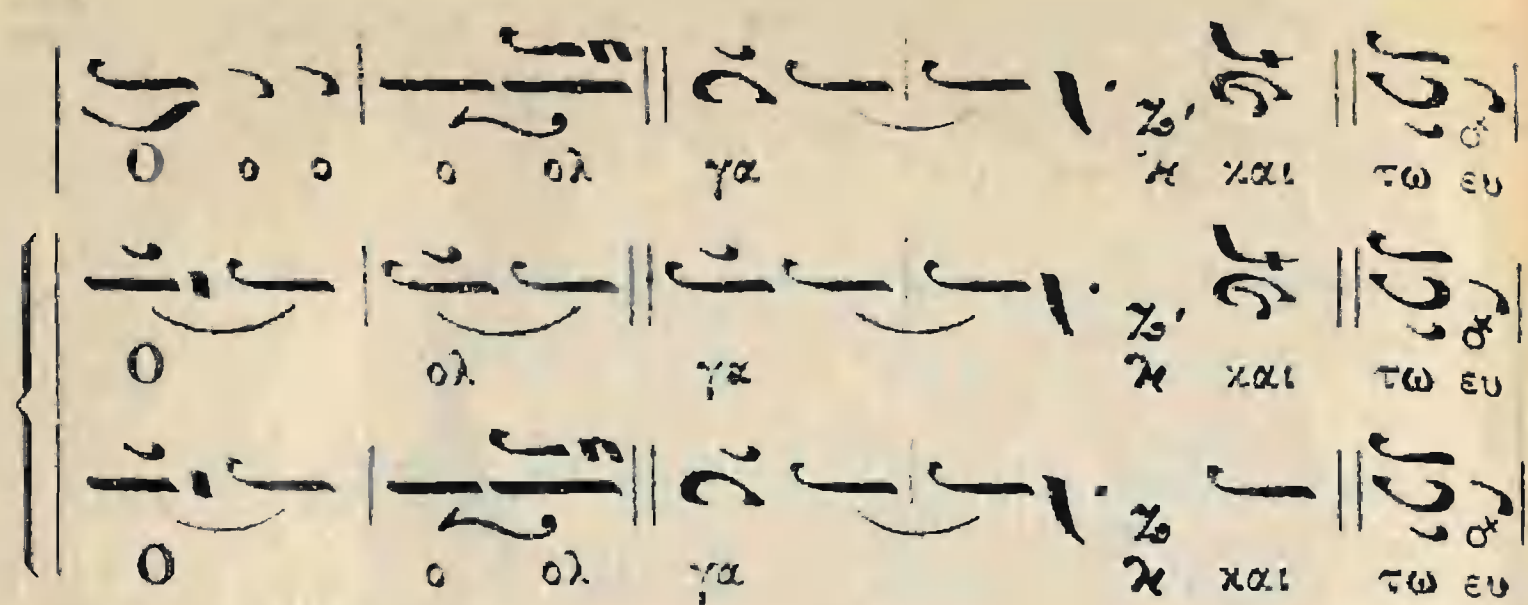 Ο ο ο ο ολ γα και τω ευ
Ο ολ γα και τω ευ
Ο ο ολ γα και τω ευ